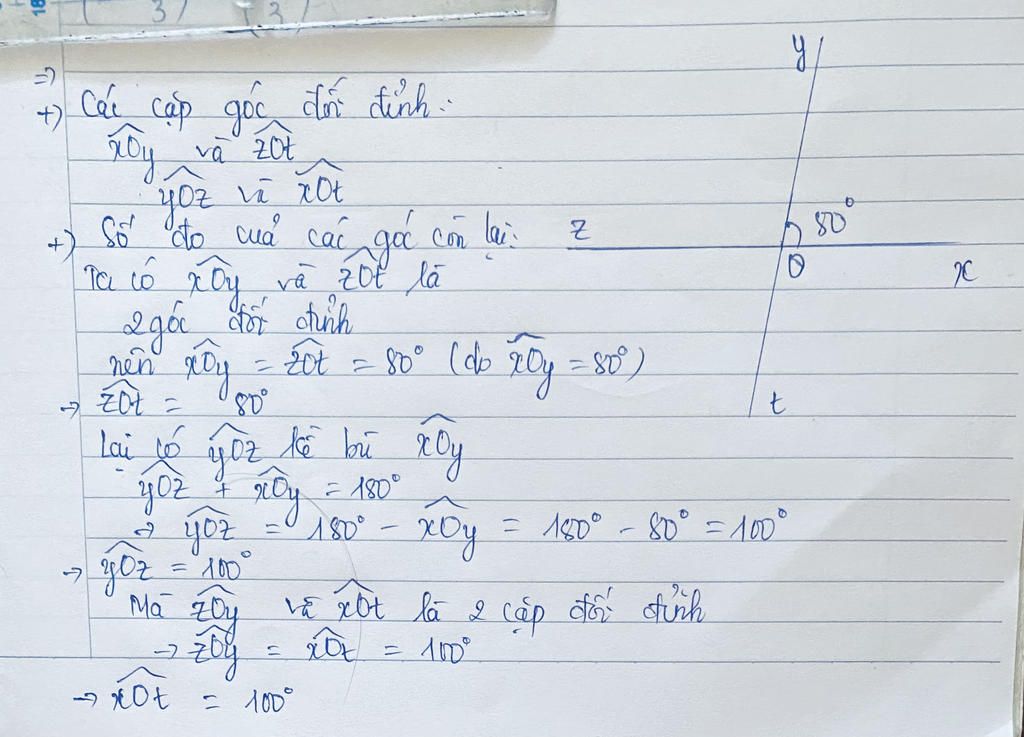 18
( 3 ) ( 3 )
=>
+) Các cặp góc đối đỉnh:
xÔy và zÔt
yÔz và xÔt
+) Số đo cuả các góc còn lại:
Ta có xÔy và zÔt là
2 góc đối đỉnh
nên xÔy = zÔt = 80° (do xÔy = 80°)
→ zÔt = 80°
Lại có yÔz kề bù xÔy
yÔz + xÔy = 180°
→ yÔz = 180° - xÔy = 180° - 80° = 100°
→ yÔz = 100°
Mà zÔy và xÔt là 2 cặp đối đỉnh
→ zÔy = xÔt = 100°
→ xÔt = 100°
y
80°
z
O
x
t